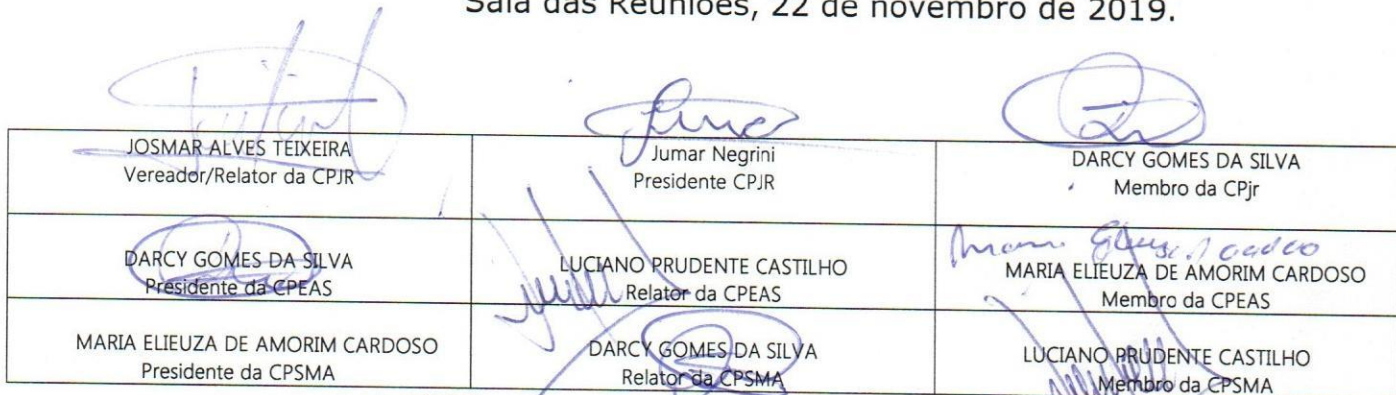 Sala das Reuniões, 22 de novembro de 2019.
JOSMAR ALVES TEIXEIRA
Vereador/Relator da CPJR
Jumar Negrini
Presidente CPJR
DARCY GOMES DA SILVA
Membro da CPjr
DARCY GOMES DA SILVA
Presidente da CPEAS
LUCIANO PRUDENTE CASTILHO
Relator da CPEAS
MARIA ELIEUZA DE AMORIM CARDOSO
Membro da CPEAS
MARIA ELIEUZA DE AMORIM CARDOSO
Presidente da CPSMA
DARCY GOMES DA SILVA
Relator da CPSMA
LUCIANO PRUDENTE CASTILHO
Membro da CPSMA